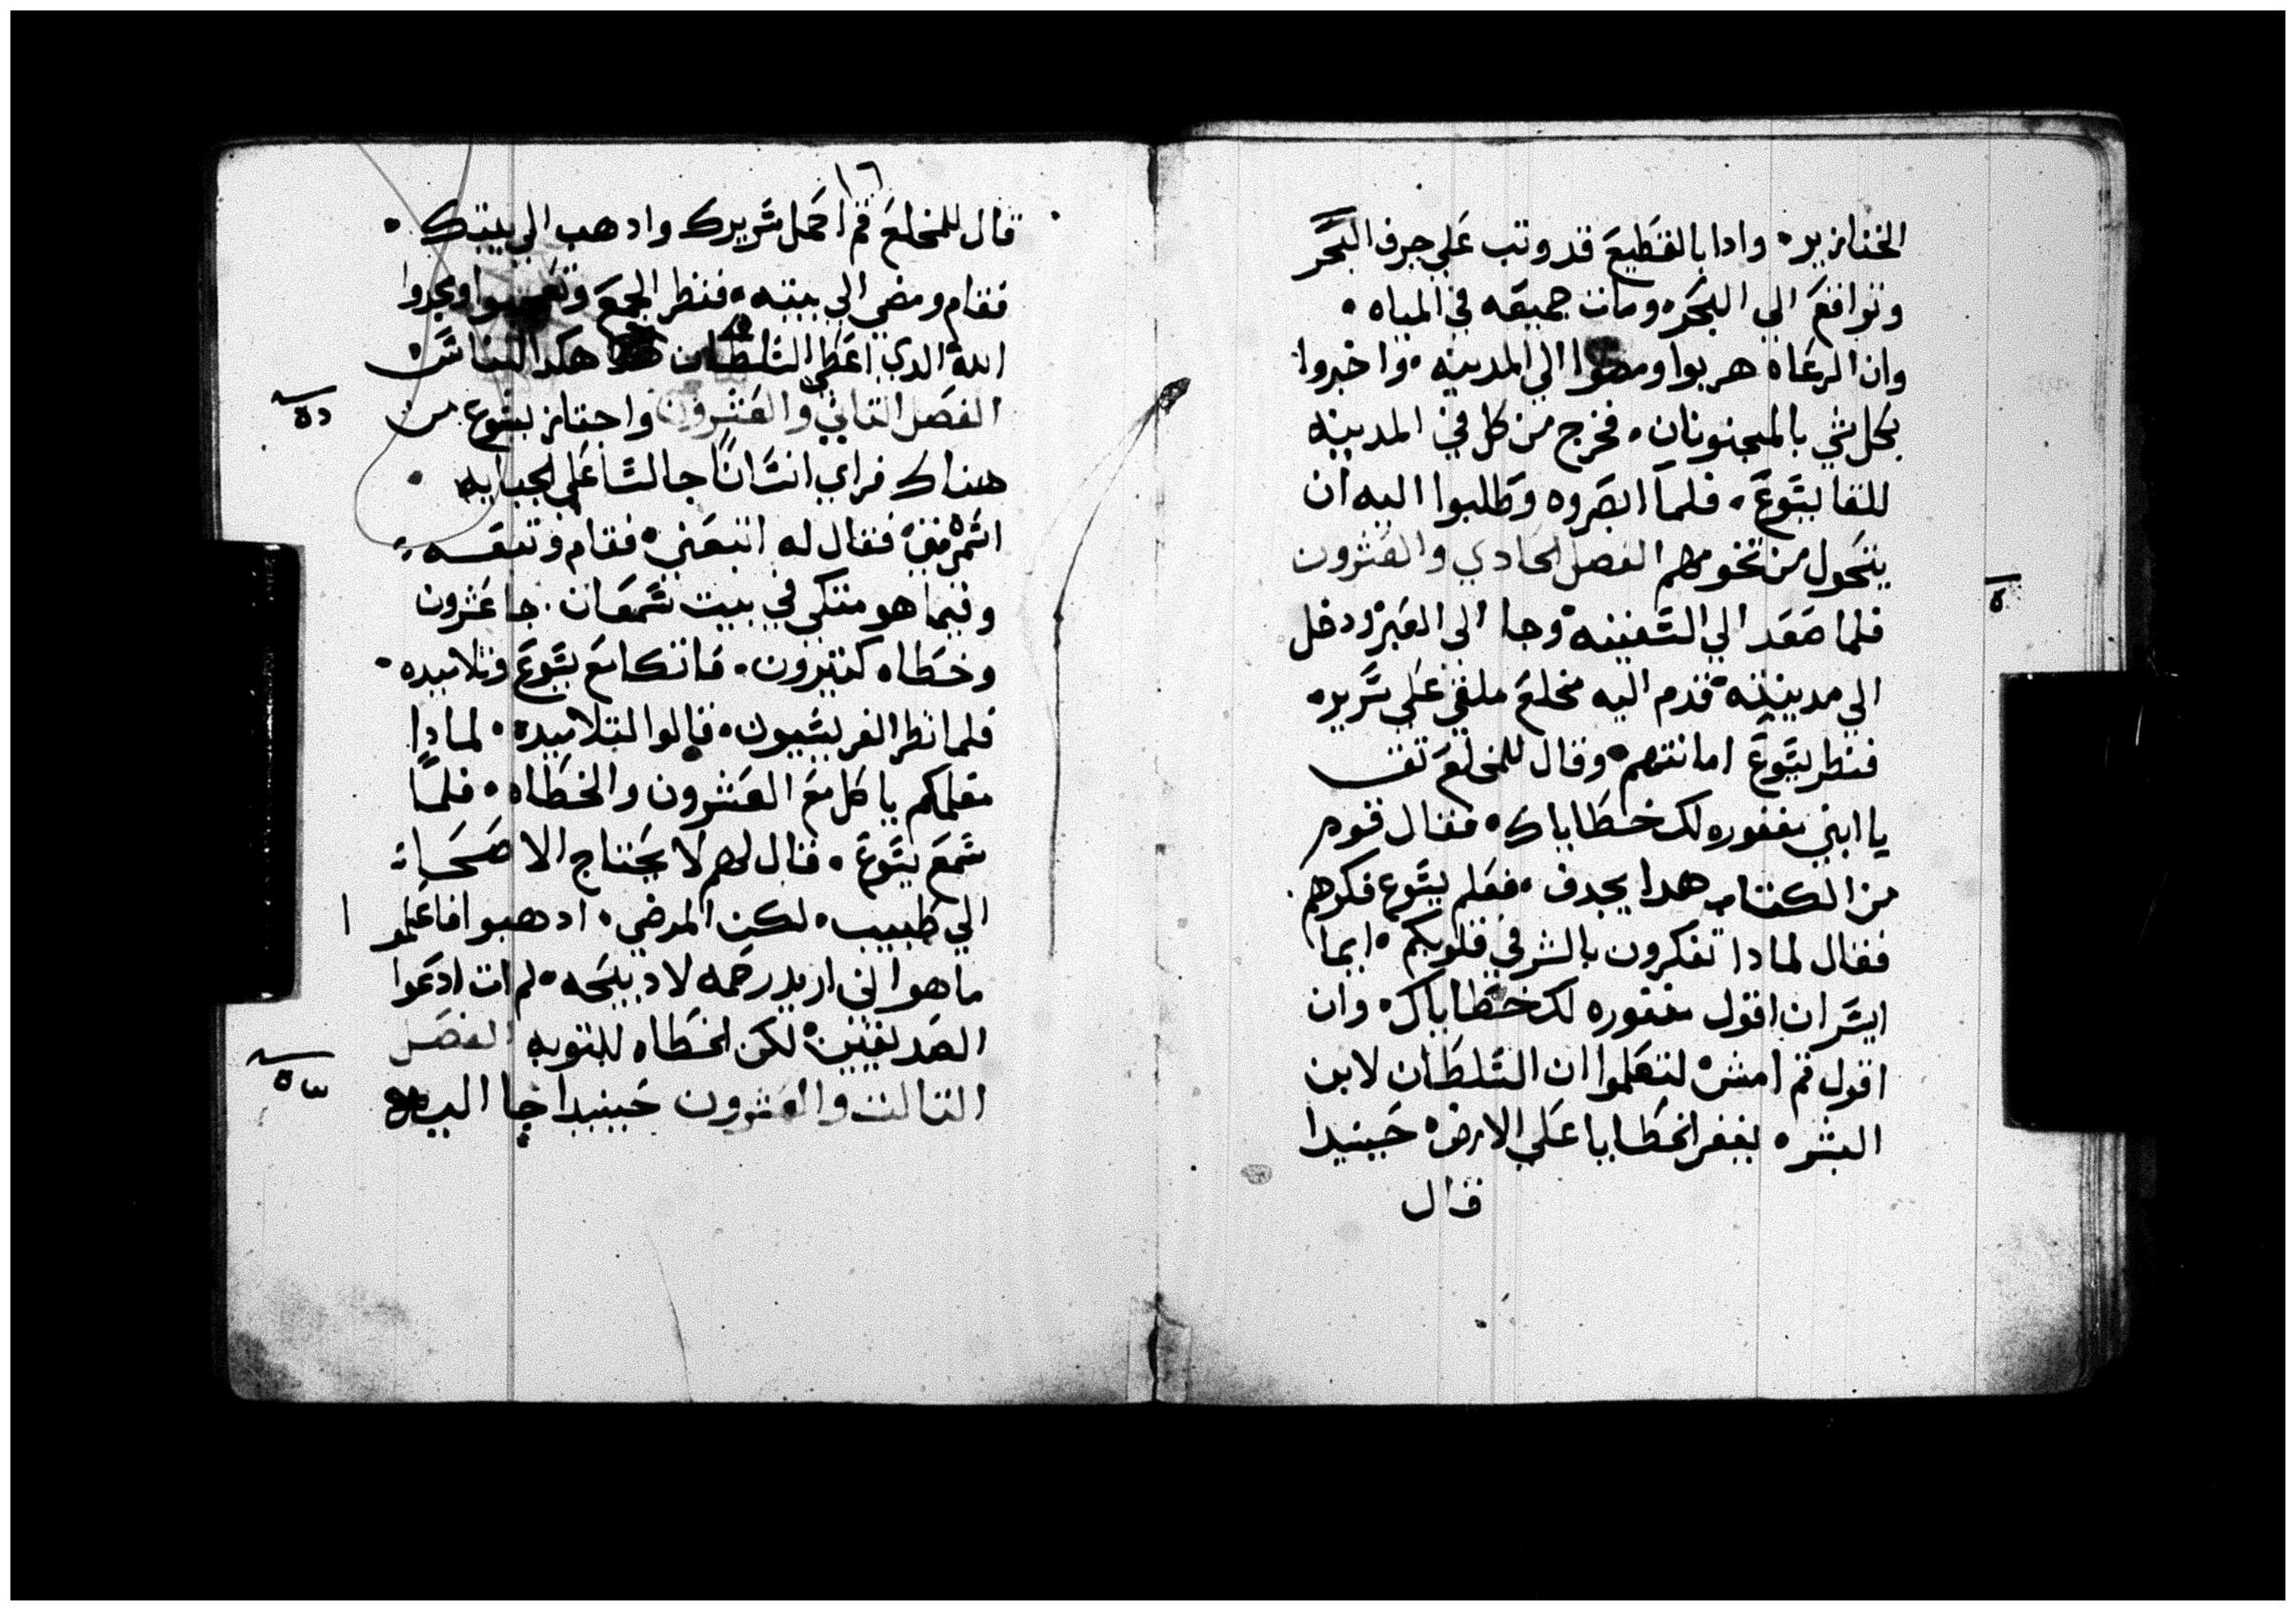 الخنازير• وادا بالقطيع قد وتب علي جرف البحر
وتواقع الي البحر• ومات جميعه في المياه •
وان الرعاه هربوا ومضوا الي المدينه • واخبروا
بكل شي بالمجنونان • فخرج من كل في المدينه
للقا يسوع • فلما ابصروه وطلبوا اليه ان
يتحول من تخومهم الفصل الحادي والعشرون
فلما صعد الي السفينه• وجا الي العبر• ودخل
الي مدينته• قدم اليه مخلع ملقي علي سرير•
فنظر يسوع امانتهم• وقال للمخلع تق
يا ابني مغفوره لك خطاياك • فقال قوم
من الكتاب هدا يجدف • فعلم يسوع فكرهم •
فقال لمادا تفكرون بالشر في قلوبكم • ايما
ايسر ان اقول مغفوره لك خطاياك • وان
اقول قم امش• لتعلموا ان السلطان لابن
البشر • يغفر الخطايا علي الارض• حينيدا
قال
١٦
قال للمخلع قم احمل سريرك وادهب الي بيتك •
فقام ومضي الي بيته • فنظر الجمع وتعجبوا ومجدوا
الله الدي اعطي السلطان هكدا للناس
الفصل التاني والعشرون واجتاز يسوع من
هناك فراي انسانًا جالسًا علي الجبايه •
اسمه متي• فقال له اتبعني• فقام وتبعه •
وفيما هو متكي في بيت سمعان • جا عشرون
وخطاه كتيرون • فاتكا مع يسوع وتلاميده •
فلما نظر الفريسيون • قالوا لتلاميده • لمادا
معلمكم ياكل مع العشرون والخطاه • فلما
سمع يسوع • قال لهم لا يحتاج الاصحا
الي طبيب • لكن المرضي • ادهبوا فاعلمو
ما هو اني اريد رحمه لا دبيحه • لم ات ادعوا
الصديقين• لكن الخطاه للتوبه الفصل
التالت والعشرون حينيدا جا اليه